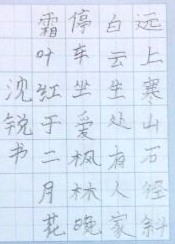 远上寒山石径斜
白云生处有人家
停车坐爱枫林晚
霜叶红于二月花
沈锐书